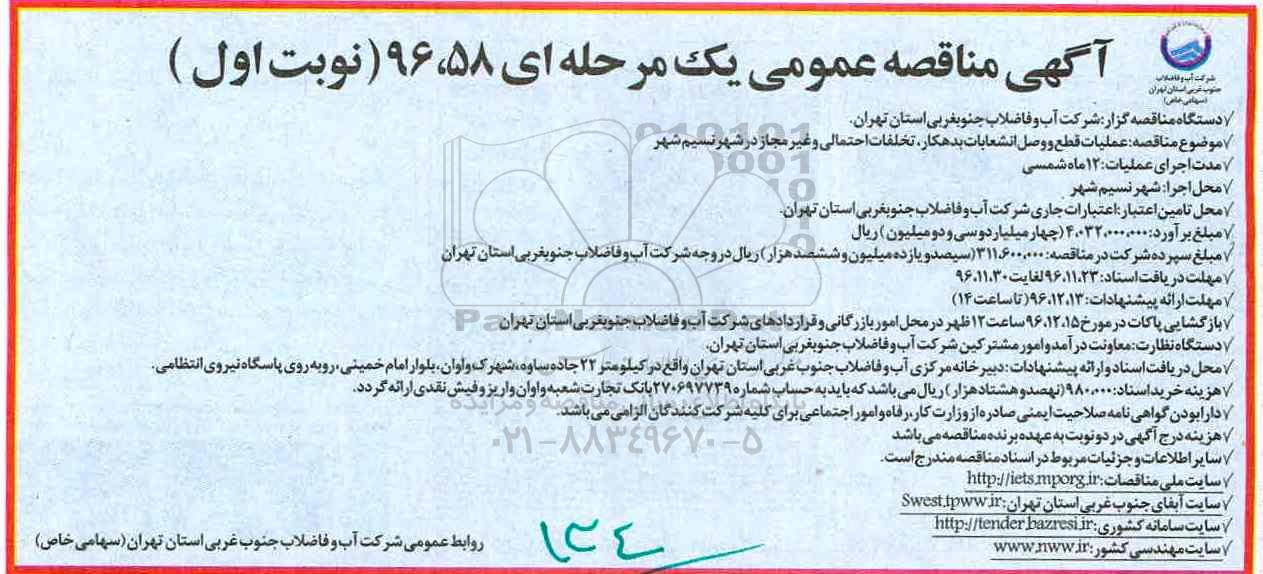 آگهی مناقصه عمومی یک مرحله ای ۹۶،۵۸ (نوبت اول)
شرکت آب و فاضلاب
جنوب غربی استان تهران
(سهامی خاص)
√دستگاه مناقصه گزار: شرکت آب و فاضلاب جنوبغربی استان تهران.
√موضوع مناقصه: عملیات قطع و وصل انشعابات بدهکار، تخلفات احتمالی و غیر مجاز در شهر نسیم شهر
√مدت اجرای عملیات: ۱۲ ماه شمسی
√محل اجرا: شهر نسیم شهر
√محل تامین اعتبار: اعتبارات جاری شرکت آب و فاضلاب جنوبغربی استان تهران.
√مبلغ برآورد: ۴،۰۳۲،۰۰۰،۰۰۰ (چهار میلیارد و سی و دو میلیون) ریال
√مبلغ سپرده شرکت در مناقصه: ۳۱۱،۶۰۰،۰۰۰ (سیصد و یازده میلیون و ششصد هزار) ریال در وجه شرکت آب و فاضلاب جنوبغربی استان تهران
√مهلت دریافت اسناد: ۹۶،۱۱،۲۳ لغایت ۹۶،۱۱،۳۰
√مهلت ارائه پیشنهادات: ۹۶،۱۲،۱۳ (تا ساعت ۱۴)
√بازگشایی پاکات در مورخ ۹۶،۱۲،۱۵ ساعت ۱۲ ظهر در محل امور بازرگانی و قراردادهای شرکت آب و فاضلاب جنوبغربی استان تهران
√دستگاه نظارت: معاونت درآمد و امور مشترکین شرکت آب و فاضلاب جنوبغربی استان تهران.
√محل دریافت اسناد و ارائه پیشنهادات: دبیرخانه مرکزی آب و فاضلاب جنوب غربی استان تهران واقع در کیلومتر ۲۲ جاده ساوه، شهرک واوان، بلوار امام خمینی، روبه روی پاسگاه نیروی انتظامی.
√هزینه خرید اسناد: ۹۸۰،۰۰۰ (نهصد و هشتاد هزار) ریال می باشد که باید به حساب شماره ۲۷۰۶۹۷۷۳۹ بانک تجارت شعبه واوان واریز و فیش نقدی ارائه گردد.
√دارا بودن گواهی نامه صلاحیت ایمنی صادره از وزارت کار، رفاه و امور اجتماعی برای کلیه شرکت کنندگان الزامی می باشد.
√هزینه درج آگهی در دو نوبت به عهده برنده مناقصه می باشد
√سایر اطلاعات و جزئیات مربوط در اسناد مناقصه مندرج است.
√سایت ملی مناقصات: http://iets.mporg.ir
√سایت آبفای جنوب غربی استان تهران: Swest.tpww.ir
√سایت سامانه کشوری: http://tender.bazresi.ir
√سایت مهندسی کشور: www.nww.ir
روابط عمومی شرکت آب و فاضلاب جنوب غربی استان تهران (سهامی خاص)
۱۳۴
۰۲۱-۸۸۳۴۹۶۷۰-۵